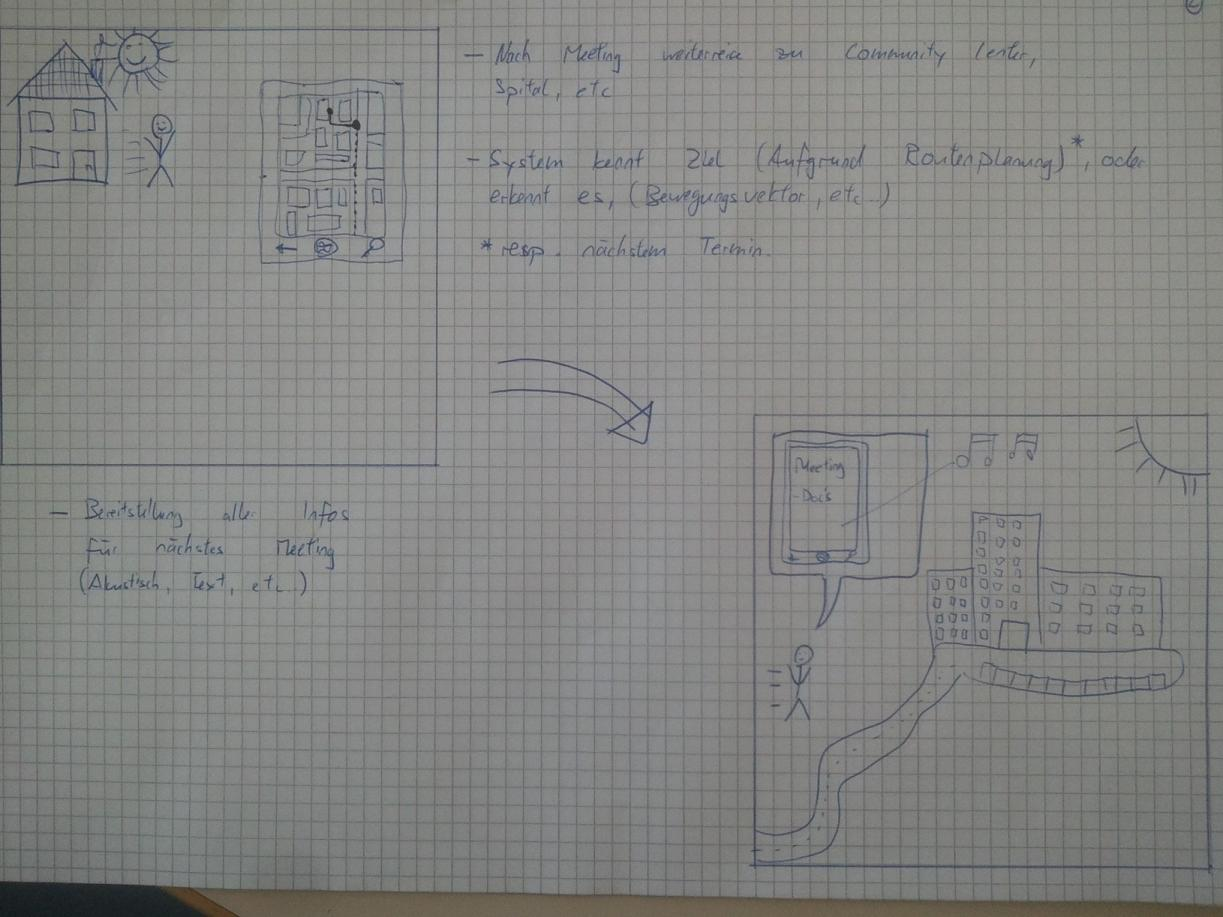 2
– Nach Meeting weiterreise zu Community Center,
Spital, etc
– System kennt Ziel (Aufgrund Routenplanung)*, oder
erkennt es, (Bewegungsvektor, etc..)
* resp. nächstem Termin.
– Bereitstellung aller Infos
für nächstes Meeting
(Akustisch, Text, etc..)
Meeting
- Docs